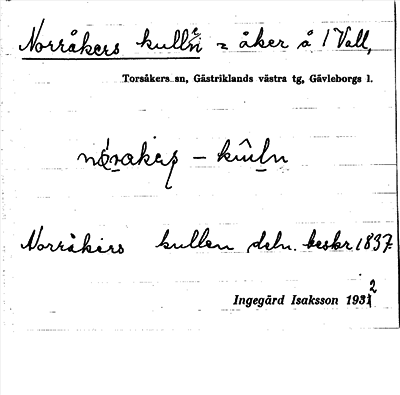 Norråkers kulln = åker å / Vall,
Torsåkers sn, Gästriklands västra tg, Gävleborgs l.
Norråkers kullen deln. beskr. 1837.
Ingegärd Isaksson 1932